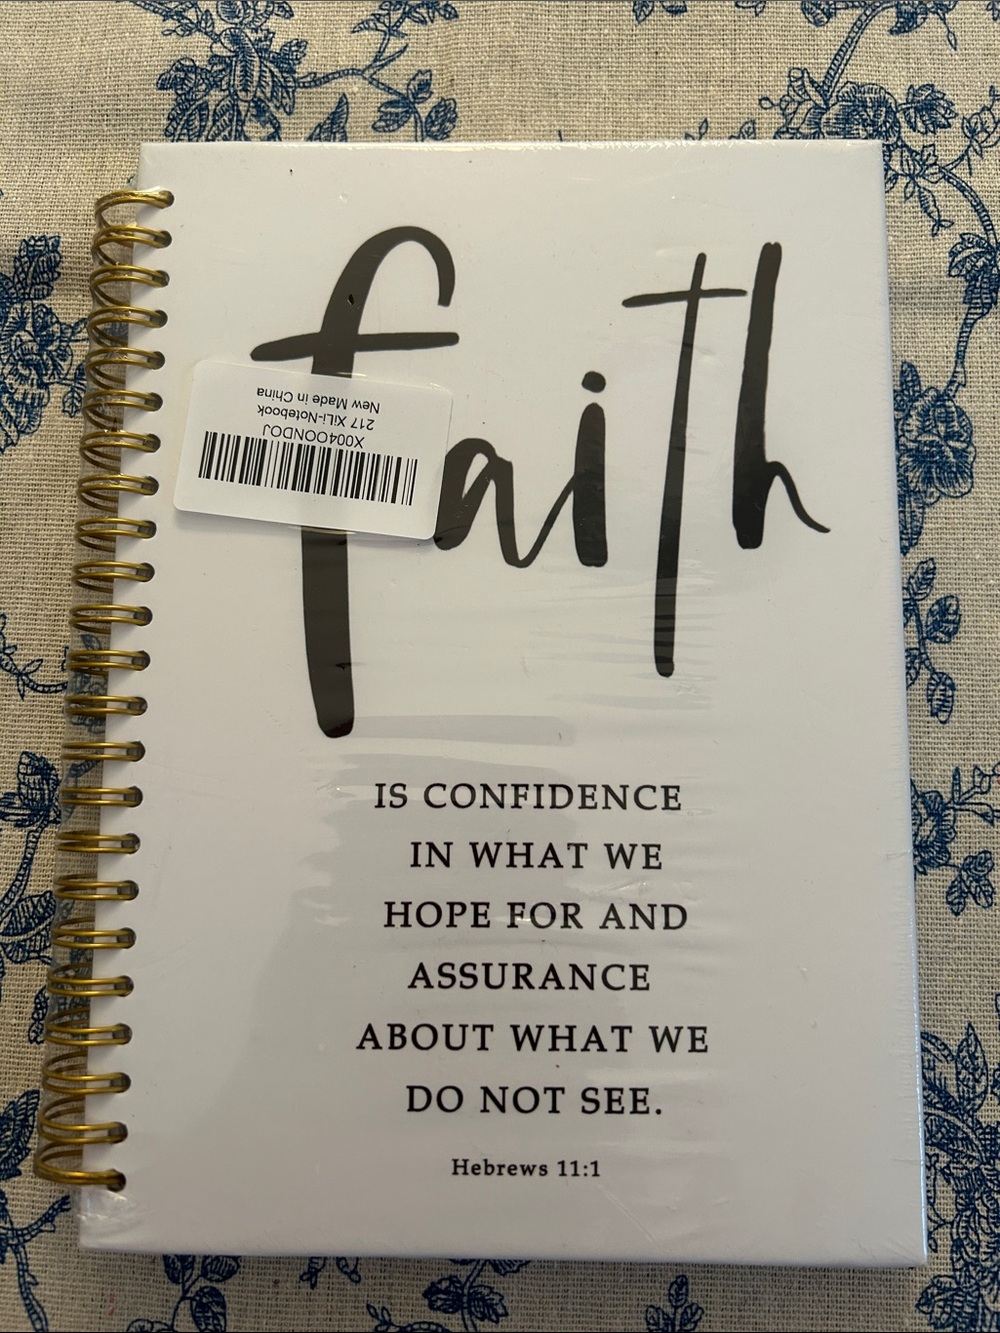 faith
X004OONDOJ
217 XiLi-Notebook
New Made in China
IS CONFIDENCE
IN WHAT WE
HOPE FOR AND
ASSURANCE
ABOUT WHAT WE
DO NOT SEE.
Hebrews 11:1